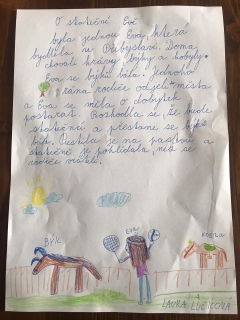 O statečné Evě
Byla jednou Eva, která
bydlela v Přibyslavi. Doma
chovali krávy, býky a kobyly.
Eva se býků bála. Jednoho
rána rodiče odjeli do města
a Eva se měla o dobytek
postarat. Rozhodla se, že bude
statečná a přestane se býků
bát. Pustila je na pastvu a
statečně je pohlídala, než se
rodiče vrátili.
BÝK
EVA
KOBYLA
LAURA